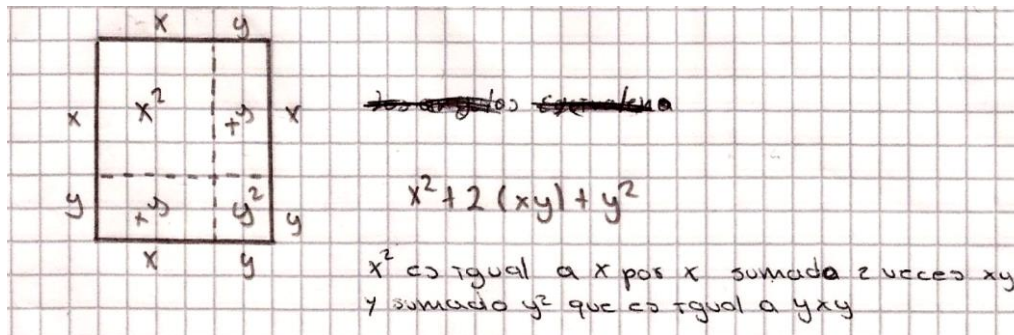 x y
x x² +y x
y +y y² y
x y
x² + 2 (xy) + y²
x² es igual a x por x sumado 2 veces xy
y sumado y² que es igual a yxy